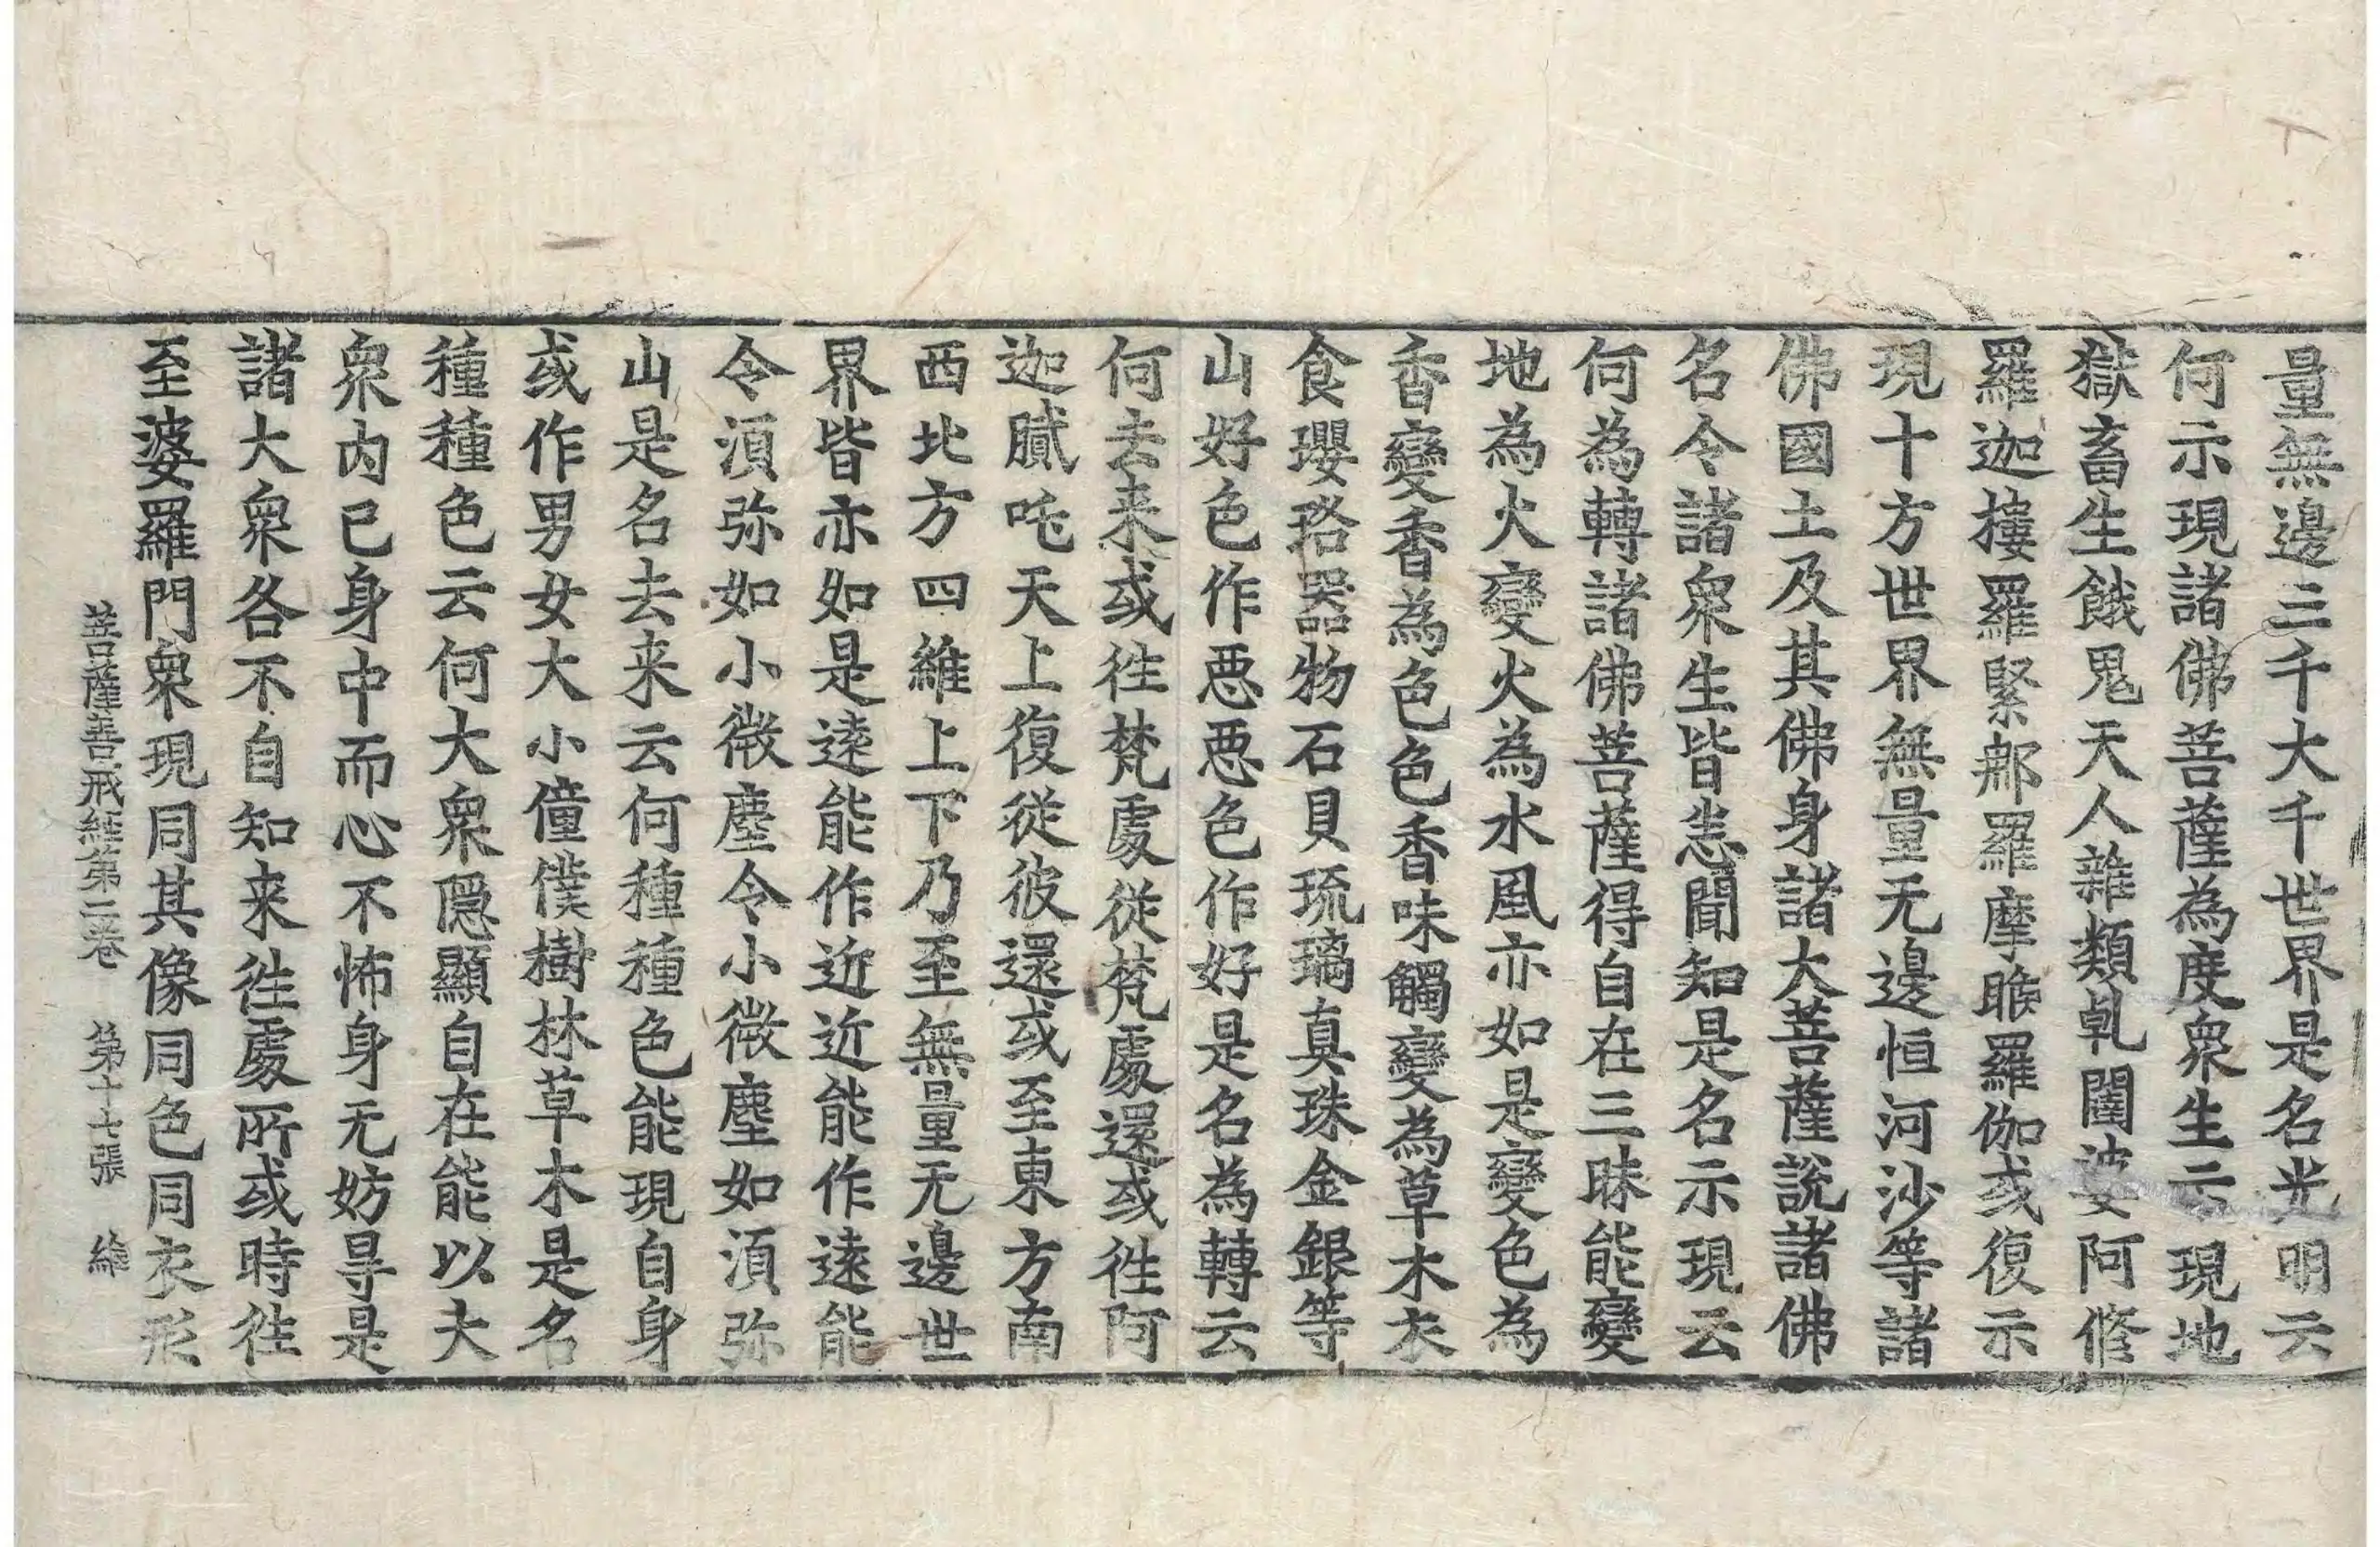 量無邊三千大千世界是名光明云
何示現諸佛菩薩為度衆生示現地
獄畜生餓鬼天人雜類乹闥婆阿脩
羅迦樓羅緊那羅摩睺羅伽或復示
現十方世界無量无邊恒河沙等諸
佛國土及其佛身諸大菩薩說諸佛
名令諸衆生皆悉聞知是名示現云
何為轉諸佛菩薩得自在三昧能變
地為火變火為水風亦如是變色為
香變香為色色香味觸變為草木衣
食瓔珞器物石貝琉璃真珠金銀等
山好色作惡惡色作好是名為轉云
何去来或徃梵處從梵處還或徃阿
迦膩吒天上復從彼還或至東方南
西北方四維上下乃至無量无邊世
界皆亦如是遠能作近近能作遠能
令湏弥如小微塵令小微塵如湏弥
山是名去来云何種種色能現自身
或作男女大小僮僕樹林草木是名
種種色云何大衆隱顯自在能以大
衆内已身中而心不怖身无妨㝵是
諸大衆各不自知来徃處所或時徃
至婆羅門衆現同其像同色同衣形
菩薩善戒經第二卷 第十七張